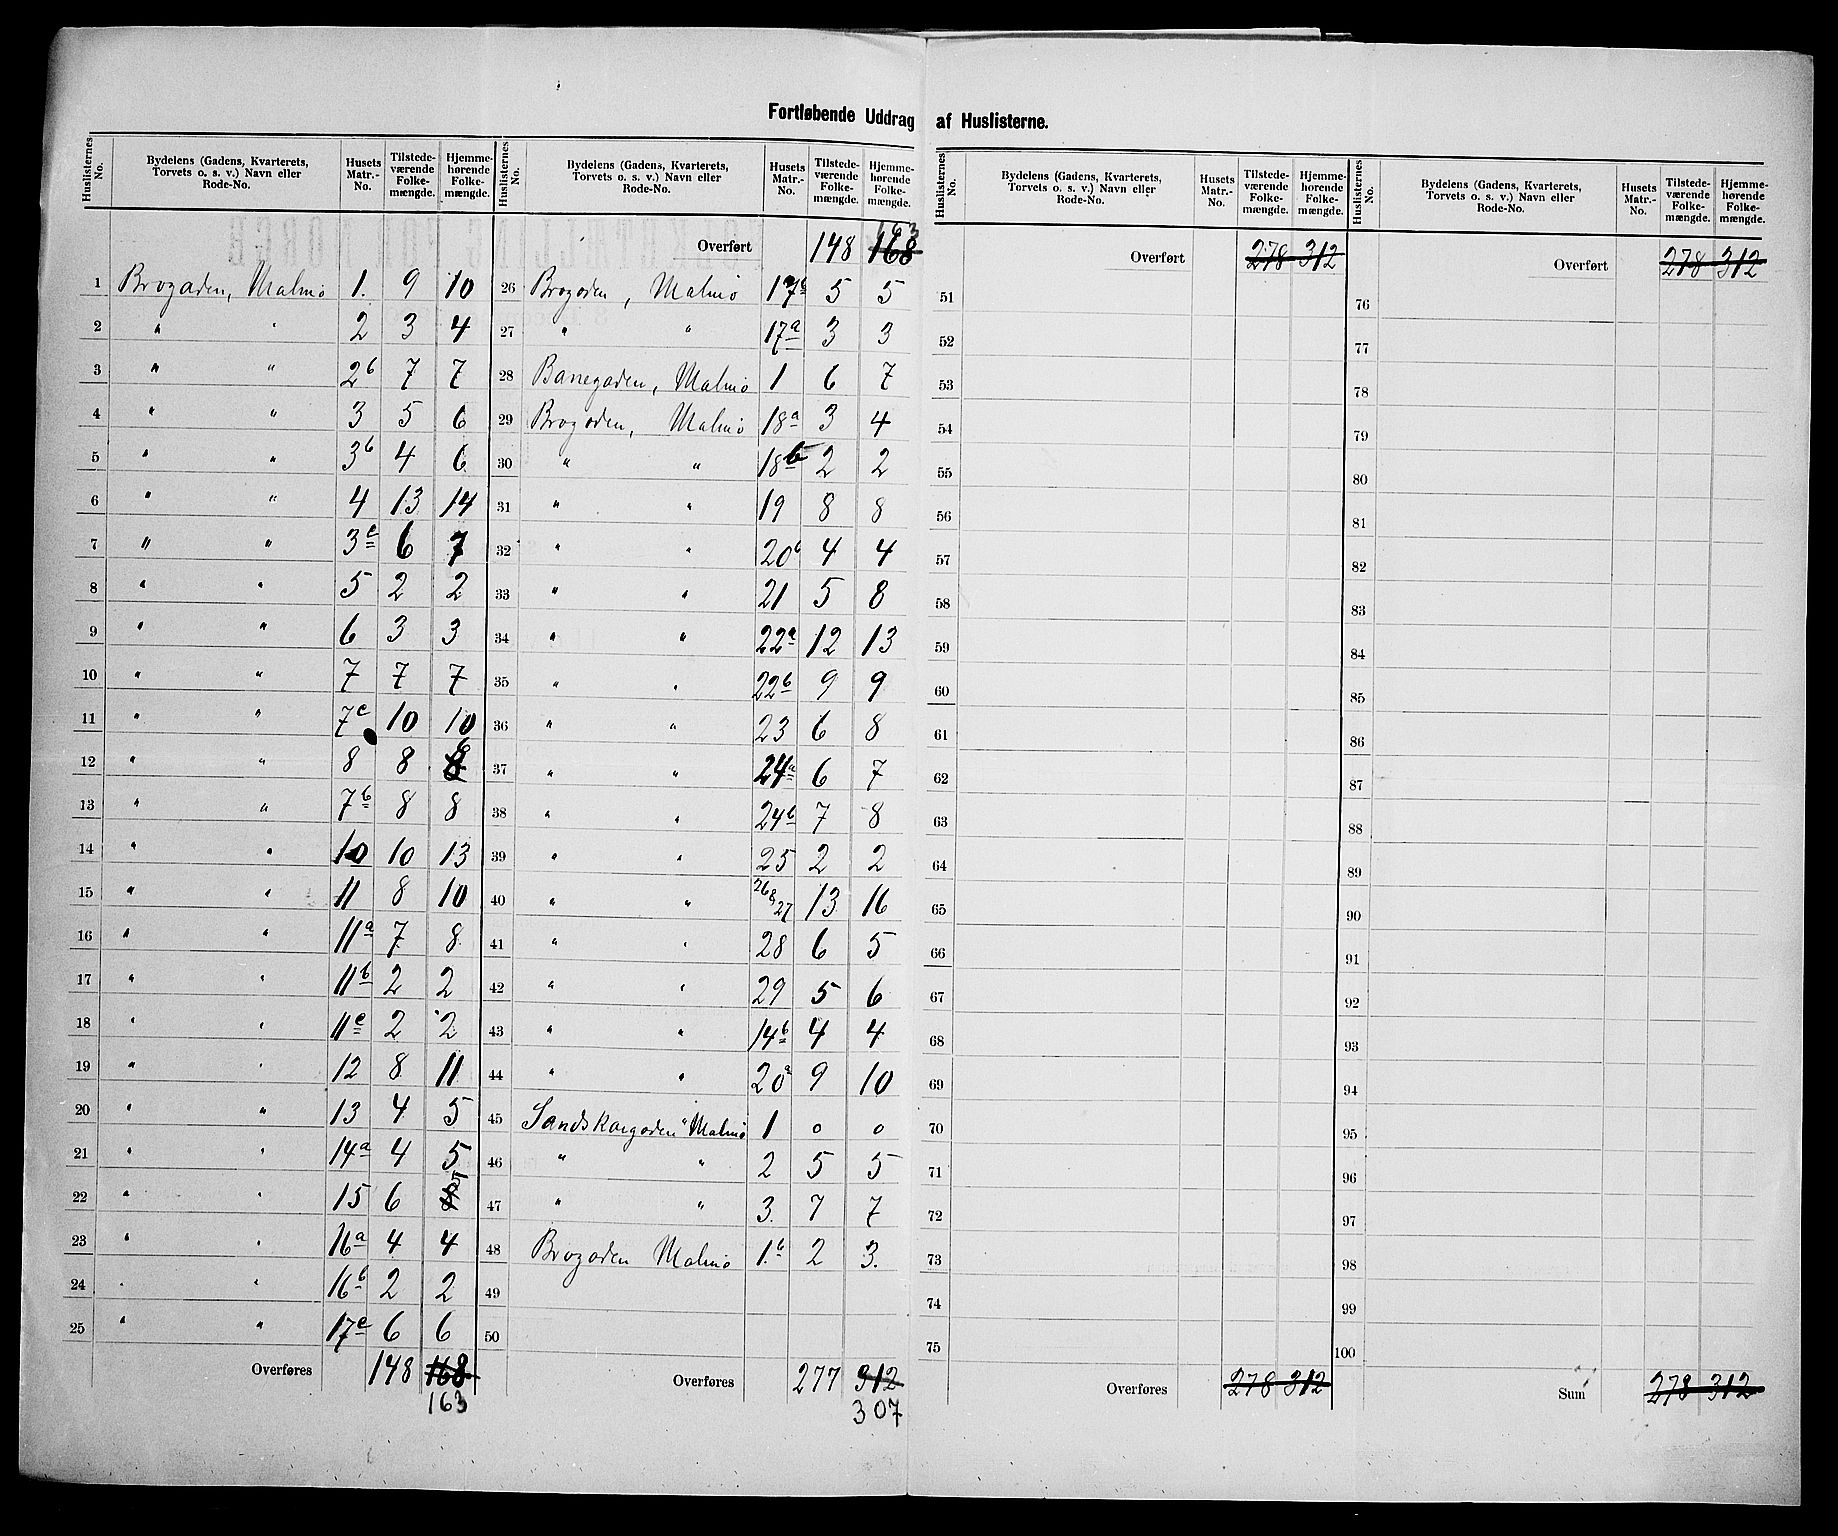 Fortløbende Uddrag af Huslisterne.
Huslisternes No. | Bydelens (Gadens, Kvarterets, Torvets o. s. v.) Navn eller Rode-No. | Husets Matr.-No. | Tilstedeværende Folkemængde. | Hjemmehørende Folkemængde.
1 Brogaden, Malmö 1. 9 10
2 " " 2 3 4
3 " " 2b 7 7
4 " " 3 5 6
5 " " 3b 4 6
6 " " 4 13 14
7 " " 3c 6 7
8 " " 5 2 2
9 " " 6 3 3
10 " " 7 7 7
11 " " 7c 10 10
12 " " 8 8
13 " " 7b 8 8
14 " " 10 10 13
15 " " 11 8 10
16 " " 11a 7 8
17 " " 11b 2 2
18 " " 11c 2 2
19 " " 12 8 11
20 " " 13 4 5
21 " " 14a 4 5
22 " " 15 6
23 " " 16a 4 4
24 " " 16b 2 2
25 " " 17c 6 6
Overføres 148 168
163
Huslisternes No. | Bydelens (Gadens, Kvarterets, Torvets o. s. v.) Navn eller Rode-No. | Husets Matr.-No. | Tilstedeværende Folkemængde. | Hjemmehørende Folkemængde.
163
Overført 148 168
26 Brogaden, Malmö 17b 5 5
27 " " 17a 3 3
28 Banegaden, Malmö 1 6 7
29 Brogaden, Malmö 18a 3 4
30 " " 18b 2 2
31 " " 19 8 8
32 " " 20b 4 4
33 " " 21 5 8
34 " " 22a 12 13
35 " " 22b 9 9
36 " " 23 6 8
37 " " 24a 6 7
38 " " 24b 7 8
39 " " 25 2 2
40 " " 26 & 27 13 16
41 " " 28 6 5
42 " " 29 5 6
43 " " 14b 4 4
44 " " 20a 9 10
45 Sandskargaden " Malmö 1 0 0
46 " " 2 5 5
47 " " 3. 7 7
48 Brogaden Malmö 1.b 2 3.
49
50
Overføres 277 312
307
Huslisternes No. | Bydelens (Gadens, Kvarterets, Torvets o. s. v.) Navn eller Rode-No. | Husets Matr.-No. | Tilstedeværende Folkemængde. | Hjemmehørende Folkemængde.
Overført 278 312
51
52
53
54
55
56
57
58
59
60
61
62
63
64
65
66
67
68
69
70
71
72
73
74
75
Overføres 278 312
Huslisternes No. | Bydelens (Gadens, Kvarterets, Torvets o. s. v.) Navn eller Rode-No. | Husets Matr.-No. | Tilstedeværende Folkemængde. | Hjemmehørende Folkemængde.
Overført 278 312
76
77
78
79
80
81
82
83
84
85
86
87
88
89
90
91
92
93
94
95
96
97
98
99
100
Sum 278 312